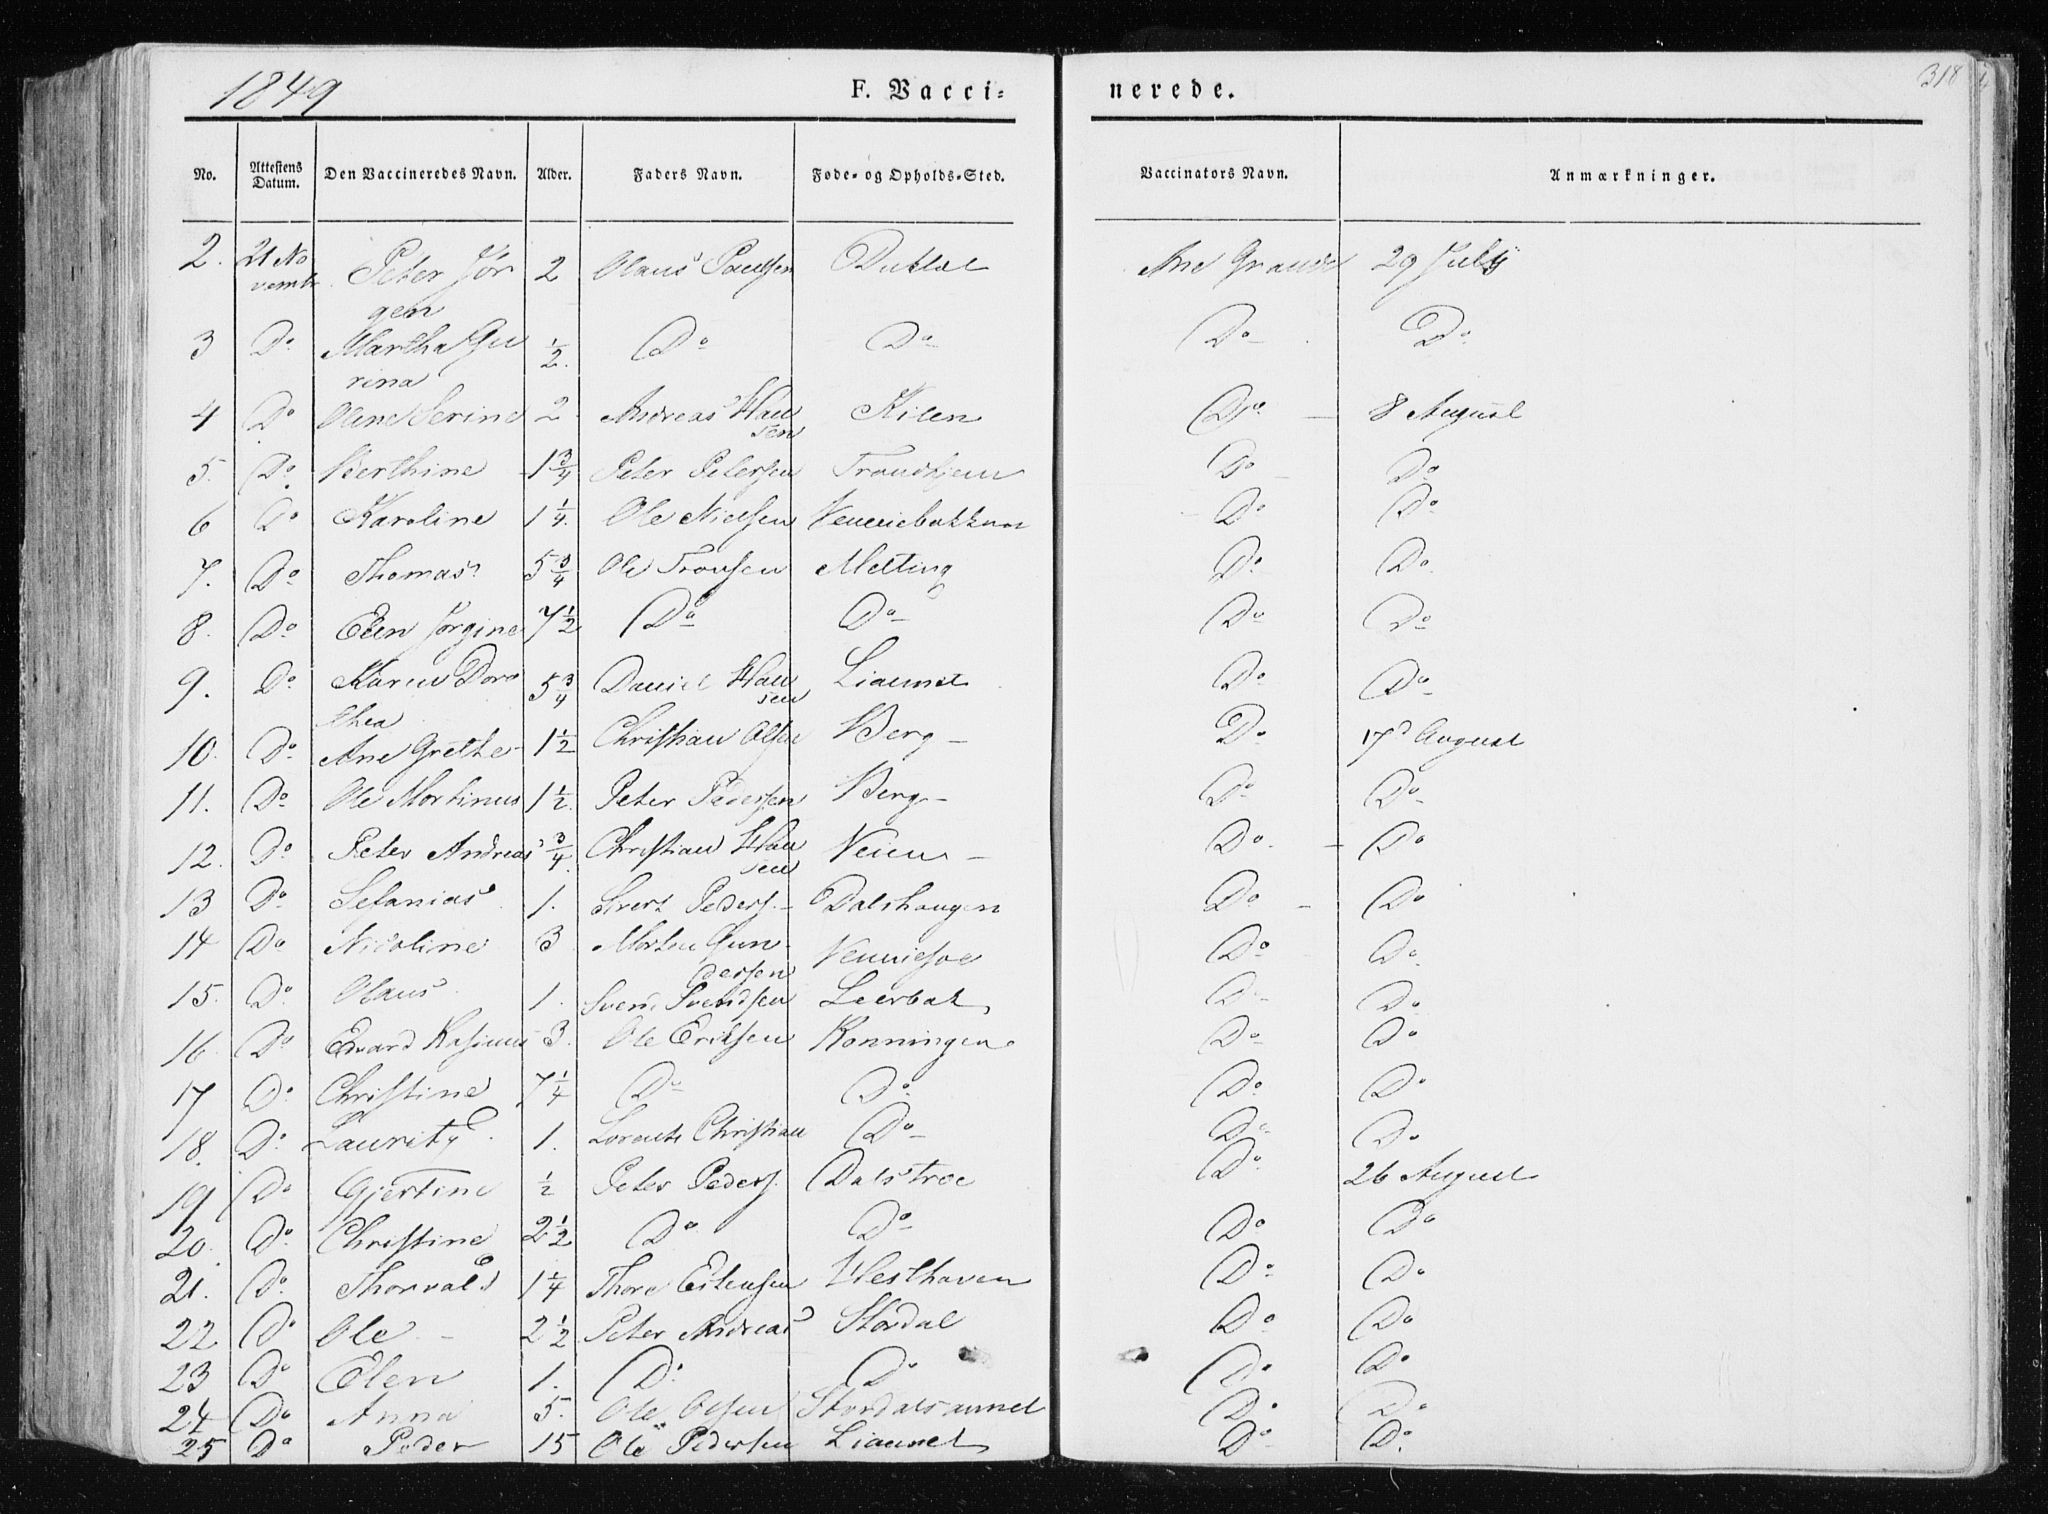 1849 F. Vacci= nerede. 318
No. Attestens Datum. Den Vaccineredes Navn. Alder. Faders Navn. Føde= og Opholds=Sted. Vaccinators Navn. Anmærkninger.
2. 21 No Peter Jør 2 Olaus Paulsen Ane Grande 29 July
vembr. gen
3 Do Martha Gu 1/2. Do Do Do Do
rina
4 Do Oline Serine 2 Andreas Han Kilen Do 8 August
sen
5. Do Berthine 1 3/4 Peter Petersen Trondhjem Do Do
6 Do Karoline 1 1/4. Ole Nielsen Do Do
7. Do Thomas 5 3/4 Ole Tronsen Melting Do Do
8. Do Elen Jørgine 7 1/2 Do Do Do Do
9. Do Karen Doro 5 3/4 Daniel Han Liaunet Do Do
thea sen
10. Do Ane Grethe 1 1/2 Christian Olsen Berg Do 17d August
11. Do Ole Mortinus 1 1/2. Peter Pedersen Berg Do Do
12. Do Peter Andreas 3/4. Christian Han Veien Do Do
sen
13 Do Sefanias 1. Sivert Peders. Dalshaugen Do Do
14 Do Nicoline 3 Morten Gun Do Do
dersen
15. Do Olaus 1. Svend Svendsen Leerbak Do Do
16. Do Edvard Kasinus 3. Ole Eriksen Ronningen Do Do
17 Do Christine 7 1/4 Do Do Do Do
18. Do Lauritz 1. Lorents Christian Do Do Do
19 Do Gjertine 1/2 Peter Peders. Dalstroe Do 26 August
20. Do Christine 2 1/2 Do Do Do Do
21. Do Thorvald 1 1/4 Thore Estensen Westhaven Do Do
22 Do Ole 2 1/2 Peter Andreas Stordal Do Do
23 Do Elen 1. Do Do Do Do
24 Do Anna 5. Ole Olsen Stordalsaunet Do Do
25 Do Peder 15 Ole Pedersen Liaunet Do Do